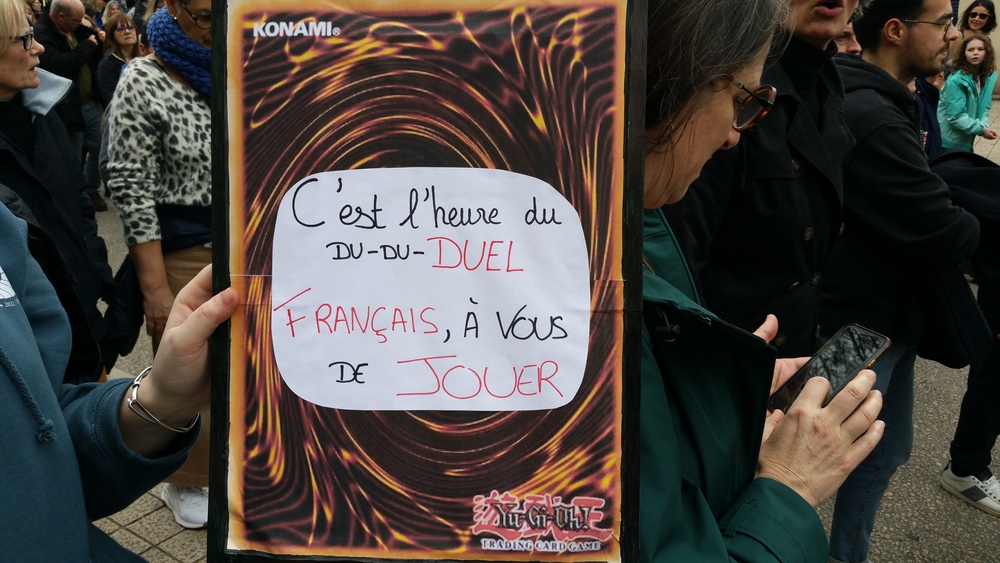 KONAMI®
C'est l'heure du
DU-DU-DUEL
FRANÇAIS, À VOUS
DE JOUER
遊戯王
Yu-Gi-Oh!
TRADING CARD GAME